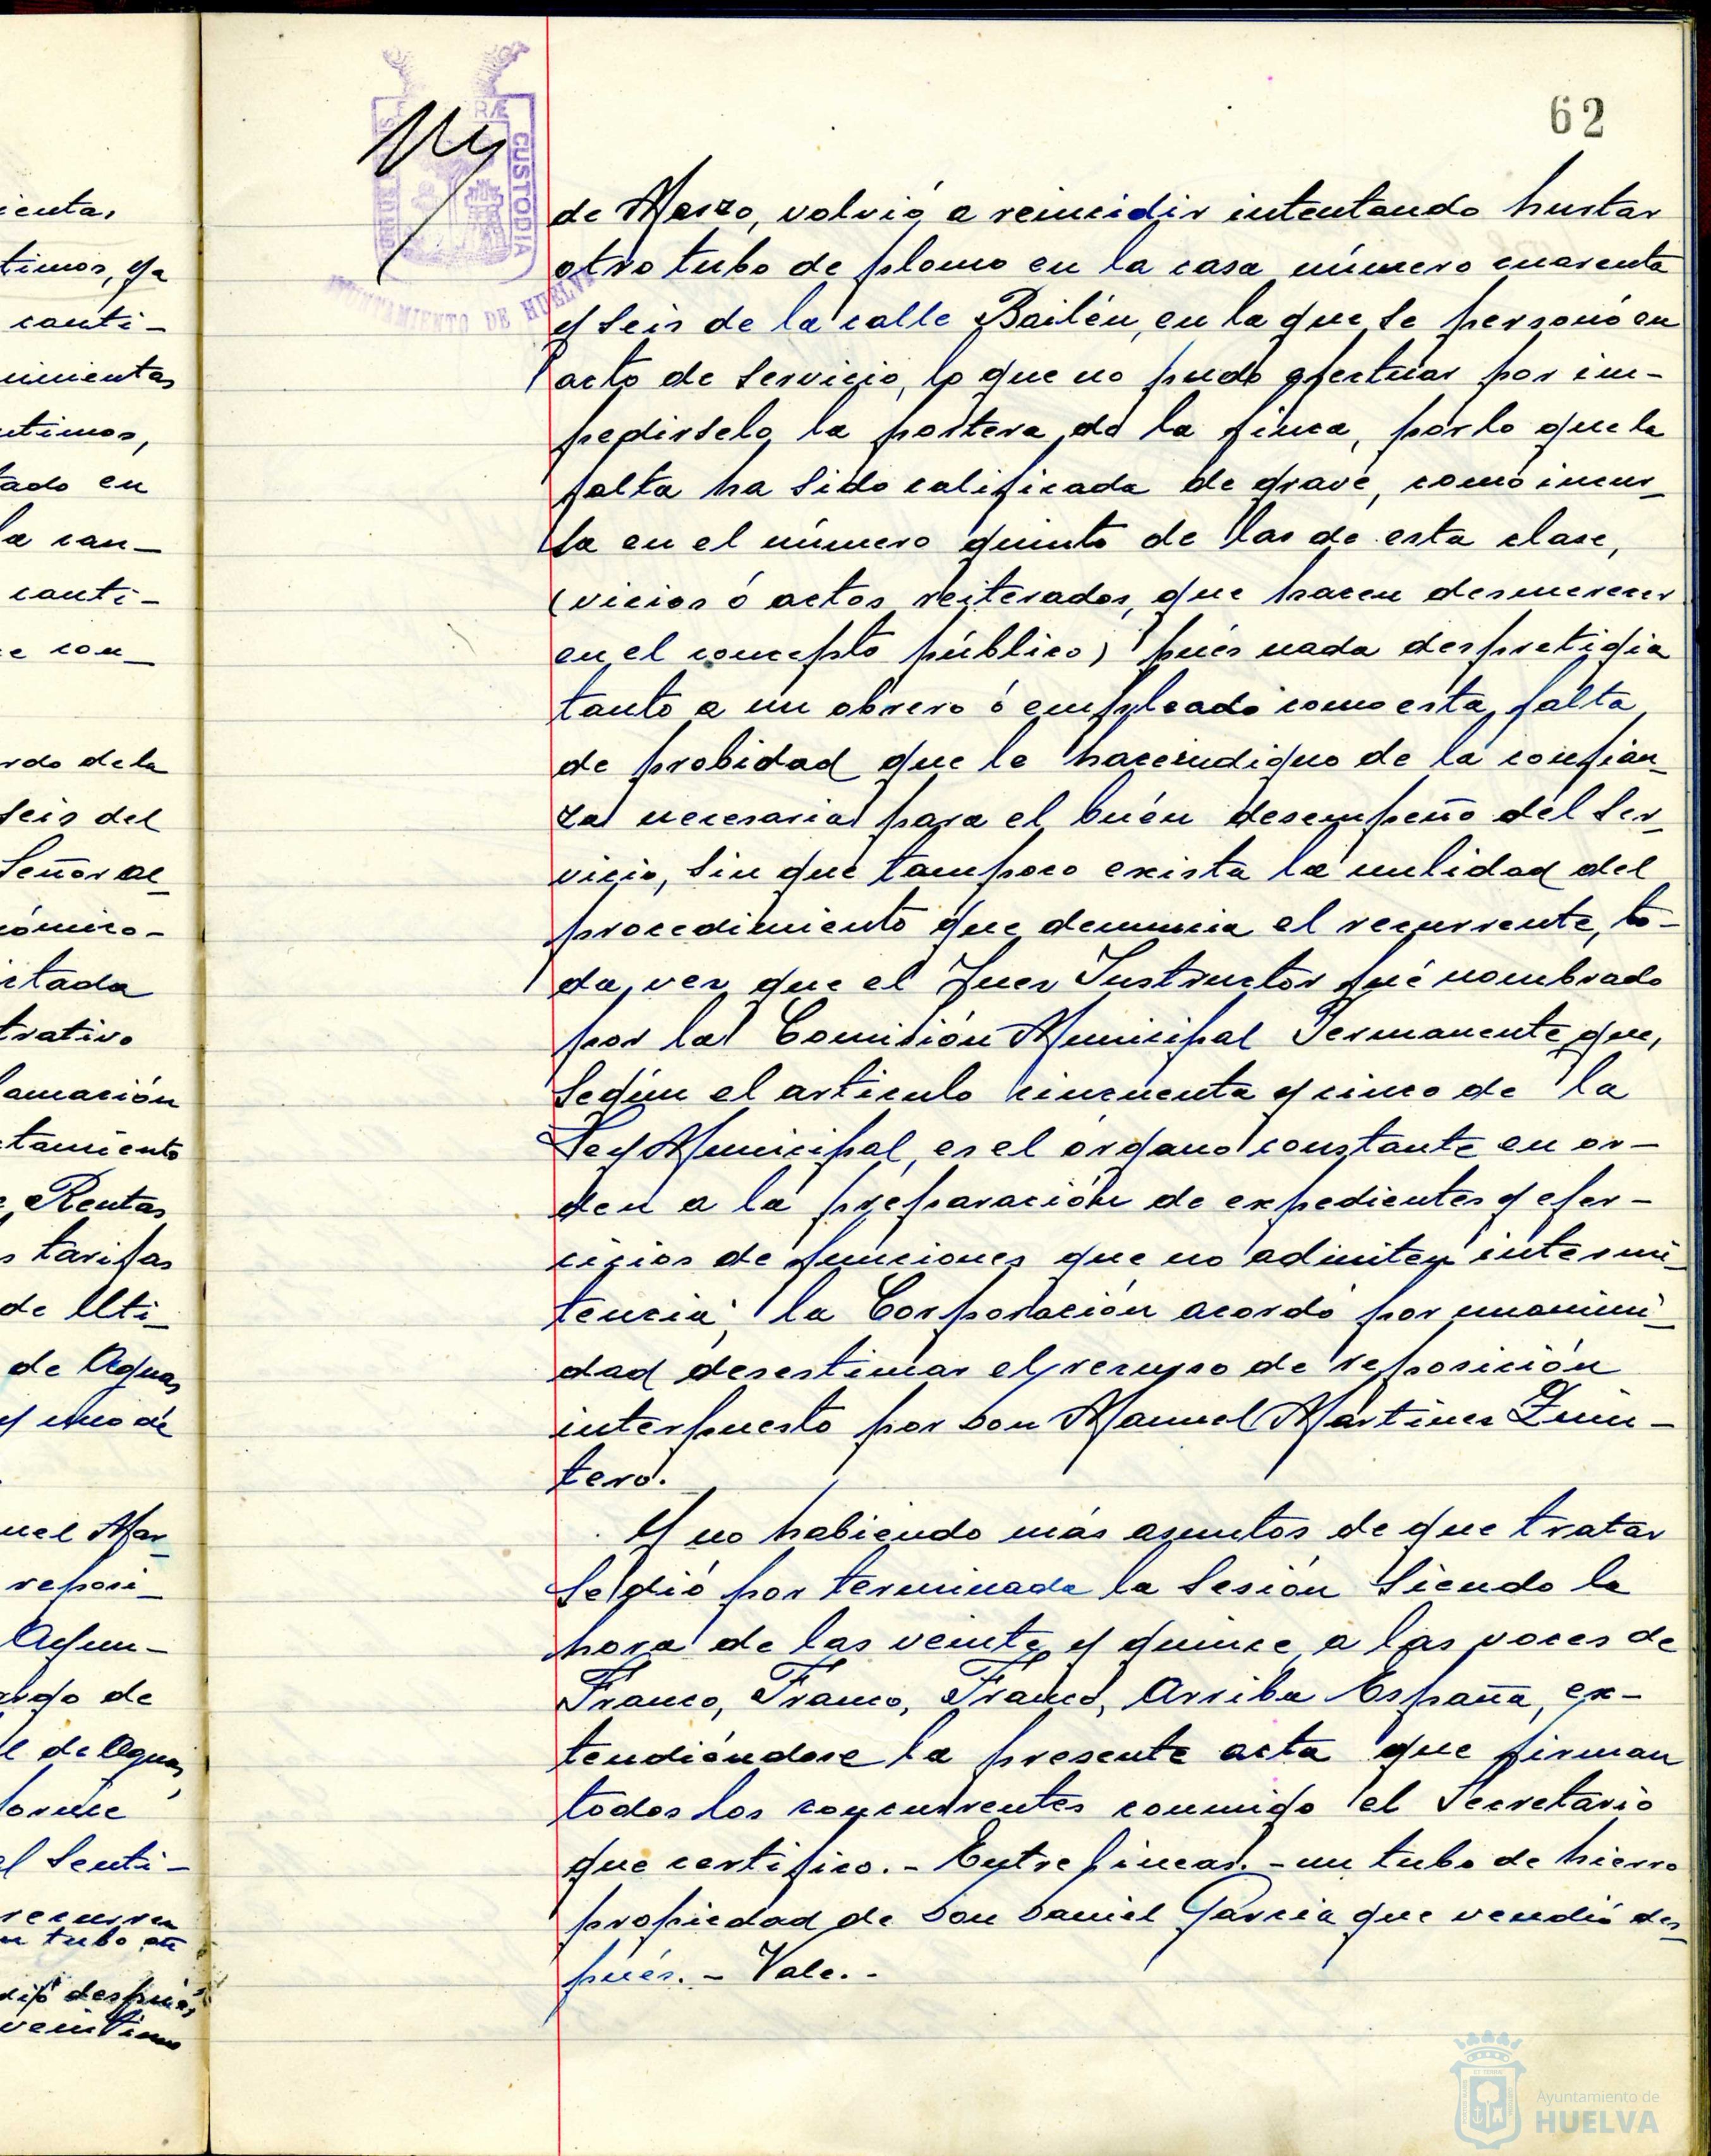 62
de Marzo, volvió a reincidir intentando hurtar
otro tubo de plomo en la casa número cuarenta
y seis de la calle Bailén, en la que se personó en
acto de servicio, lo que no pudo efectuar por im-
pedirselo la portera de la finca, por lo que la
falta ha sido calificada de grave, como incur-
sa en el número quinto de las de esta clase,
(vicios ó actos reiterados, que hacen desmerecer
en el concepto público) pués nada desprestigia
tanto a un obrero ó empleado como esta falta
de probidad que le hace indigno de la confian-
za necesaria para el buén desempeño del ser-
vicio, sin que tampoco exista la nulidad del
procedimiento que denuncia el recurrente, to-
da vez que el Juez Instructor fué nombrado
por la Comisión Municipal Permanente que,
según el articulo cincuenta y cinco de la
Ley Municipal, es el órgano constante en or-
den a la preparación de expedientes y ejer-
cicios de funciones que no admiten intermi-
tencia; la Corporación acordó por unanimi-
dad desestimar el recurso de reposición
interpuesto por Don Manuel Martinez Quin-
tero.
Y no habiendo más asuntos de que tratar
se dió por terminada la sesión siendo la
hora de las veinte y quince a las voces de
Franco, Franco, Franco, Arriba España, ex-
tendiéndose la presente acta que firman
todos los concurrentes conmigo el Secretario
que certifico. - Entre lineas. - un tubo de hierro
propiedad de Don Daniel Garcia que vendió des-
pués. - Vale. -
CUSTODIA
AYUNTAMIENTO DE HUELVA
ientas
timos, ya
canti-
imientas
ntimos,
tado en
la can-
canti-
e con-
rdo de la
seis del
Señor al-
ómico-
itada
trativo
lamación
tamiento
e Rentas
s tarifas
de Uti-
de Aguas
uel Mar-
reposi-
Ayun-
argo de
l de Aguas
l senti-
recurren
n tubo
dió después
veintiuno
Ayuntamiento de
HUELVA